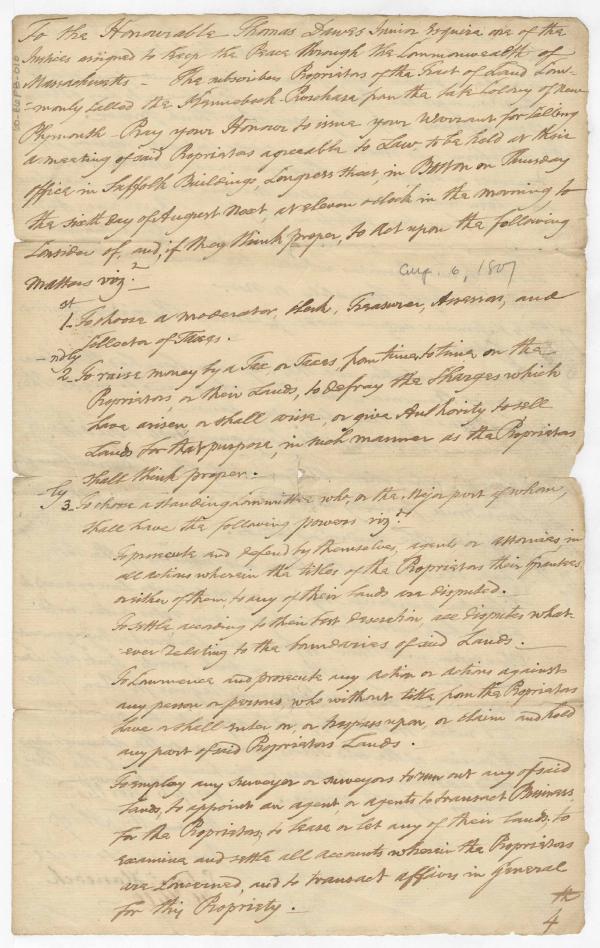 To the Honourable Thomas Dawes Junior Esquire one of the
Justices assigned to keep the Peace through the Commonwealth of
Massachusetts - The subscribers Proprietors of the Tract of Land Com-
-monly called the Kennebeck Purchase from the late Colony of New
Plymouth - Pray your Honour to issue your Warrant for calling
a meeting of said Proprietors agreeable to Law to be held at their
office in Suffolk Buildings, Congress street, in Boston on Thursday
the sixth day of August Next, at eleven oClock in the morning, to
Consider of, and, if they think proper, to Act upon the following
Matters viz.t
Aug. 6, 1807
1st To choose a moderator, Clerk, Treasurer, Assessors, and
Collector of Taxes.
2ndly To raise money by a Tax, or Taxes, from time, to time on the
Proprietors, or their Lands, to defray the Charges which
have arisen, or shall arise, or give Authority to sell
Lands for that purpose, in such manner as the Proprietors
shall think proper.
3ly To choose a standing Committee who, or the Major part of whom,
shall have the following powers viz.t
To prosecute and defend by themselves, agents or attornies in
all actions wherein the titles of the Proprietors their Grantees
or either of them to any of their Lands are disputed.
To settle according to their best discretion, all disputes what-
ever relating to the boundaries of said Lands.
To Commence and prosecute any action or actions against
any person or persons, who without title from the Proprietors
have or shall enter on, or trespass upon, or claim and hold
any part of said Proprietors Lands.
To employ any surveyor or surveyors to run out any of said
Lands, to appoint an agent, or agents to transact Business
for the Proprietors, to lease or let any of their Lands, to
examine and settle all accounts wherein the Proprietors
are Concerned, and to transact affairs in General
for this Propriety.
4th